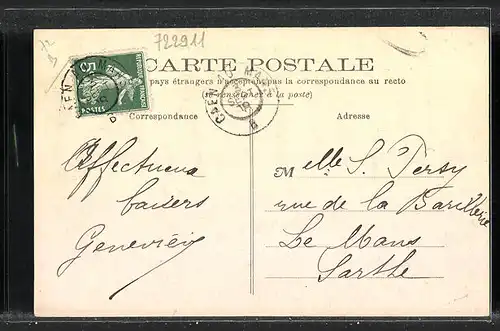 722911
CARTE POSTALE
pays étrangers n'acceptent pas la correspondance au recto
(se renseigner à la poste)
Correspondance
Adresse
Affectueux
baisers
Geneviève
Melle S. Tersy
rue de la Barillerie
Le Mans
Sarthe
5c
POSTES
CAEN